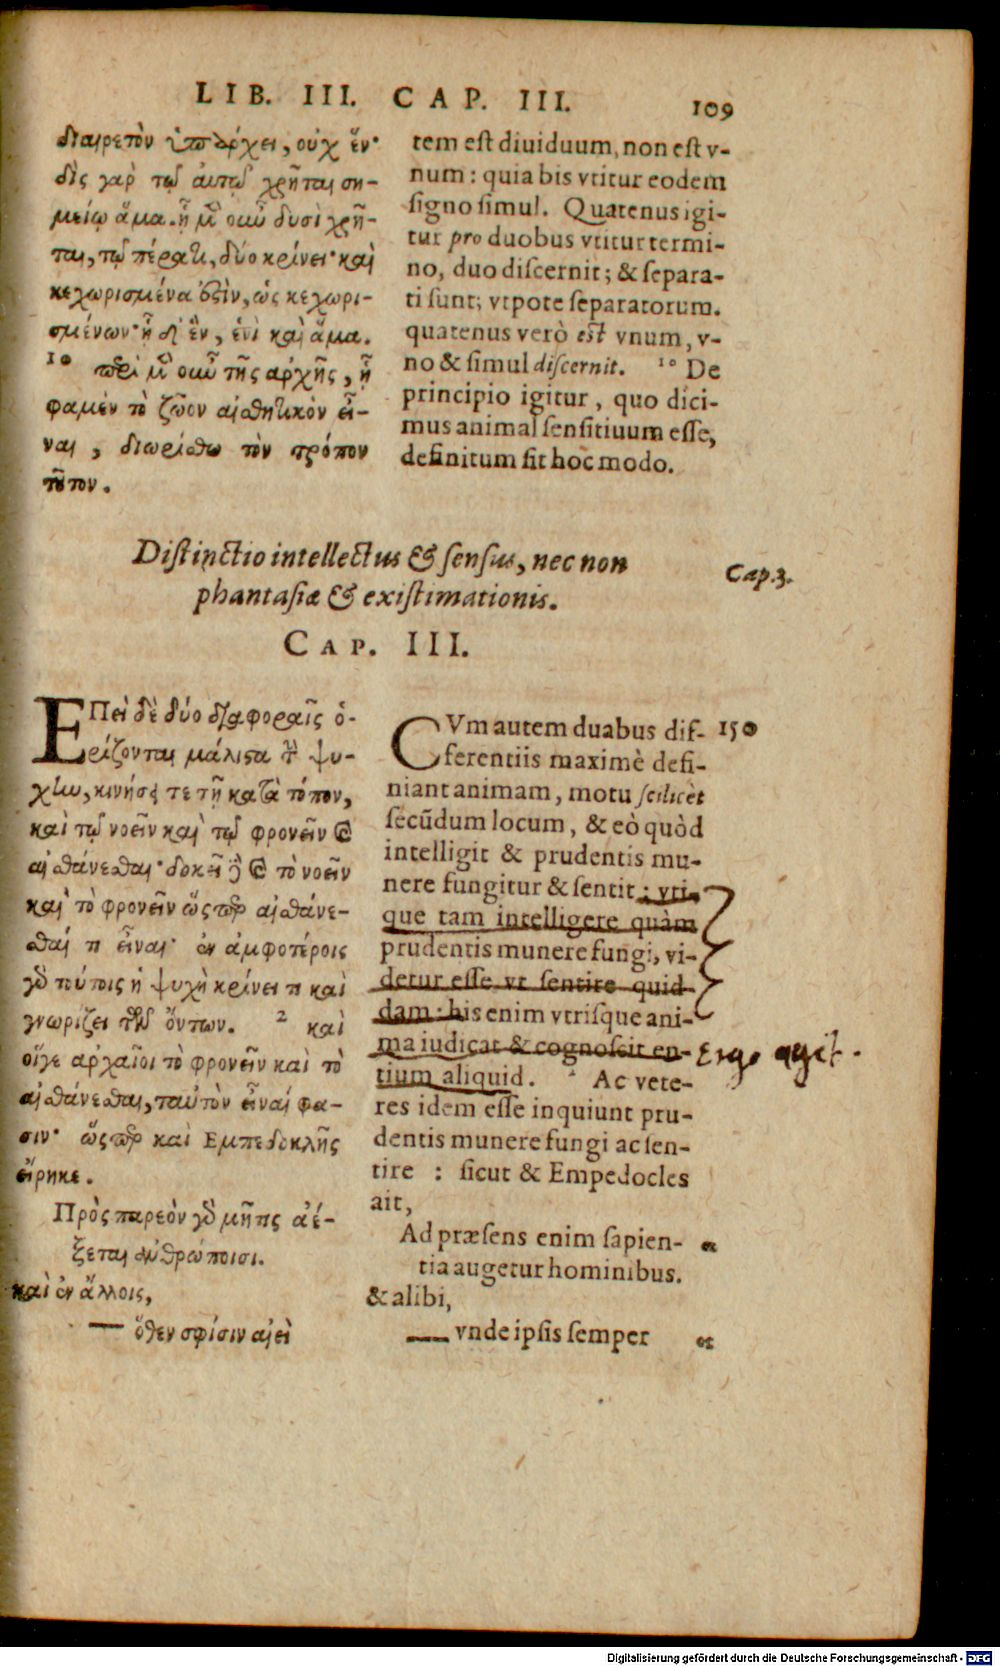 LIB. III. CAP. III. 109
διαιρετὸν ὑπάρχει, οὐχ ἕν·
δὶς γὰρ τῷ αὐτῷ χρῆται ση-
μείῳ ἅμα. ᾗ μὲν οὖν δυσὶ χρῆ-
ται, τῷ πέρατι, δύο κρίνει· καὶ
κεχωρισμένα ἐστὶν, ὡς κεχωρι-
σμένων· ᾗ δ' ἓν, ἑνὶ καὶ ἅμα.
10 περὶ μὲν οὖν τῆς ἀρχῆς, ᾗ
φαμὲν τὸ ζῶον αἰσθητικὸν εἶ-
ναι, διωρίσθω τὸν τρόπον
τοῦτον.
tem est diuiduum, non est v-
num: quia bis vtitur eodem
signo simul. Quatenus igi-
tur pro duobus vtitur termi-
no, duo discernit; & separa-
ti sunt; vtpote separatorum.
quatenus verò est vnum, v-
no & simul discernit. 10 De
principio igitur, quo dici-
mus animal sensitiuum esse,
definitum sit hoc modo.
Distinctio intellectus & sensus, nec non
phantasiæ & existimationis.
Cap. 3.
CAP. III.
ΕΠεὶ δὲ δύο διαφοραῖς ὁ-
ρίζονται μάλιστα τὴν ψυ-
χὴν, κινήσει τε τῇ κατὰ τόπον,
καὶ τῷ νοεῖν καὶ τῷ φρονεῖν καὶ
αἰσθάνεσθαι· δοκεῖ δὲ καὶ τὸ νοεῖν
καὶ τὸ φρονεῖν ὥσπερ αἰσθάνε-
σθαί τι εἶναι· ἐν ἀμφοτέροις
γὸ τούτοις ἡ ψυχὴ κρίνει τι καὶ
γνωρίζει τῶν ὄντων. 2 καὶ
οἵγε ἀρχαῖοι τὸ φρονεῖν καὶ τὸ
αἰσθάνεσθαι, ταὐτὸν εἶναί φα-
σιν· ὥσπερ καὶ Εμπεδοκλῆς
εἴρηκε.
Πρὸς παρεὸν γὸ μῆτις ἀέ-
ξεται ἀνθρώποισι.
καὶ ἐν ἄλλοις,
— ὅθεν σφίσιν αἰεὶ
CVm autem duabus dif- 150
ferentiis maximè defi-
niant animam, motu scilicèt
secūdum locum, & eò quòd
intelligit & prudentis mu-
nere fungitur & sentit; vti-
que tam intelligere quàm
prudentis munere fungi, vi-
detur esse vt sentire quid-
dam: his enim vtrisque ani-
ma iudicat & cognoscit en- Ergo agit.
tium aliquid. 2 Ac vete-
res idem esse inquiunt pru-
dentis munere fungi ac sen-
tire : sicut & Empedocles
ait,
Ad præsens enim sapien-
tia augetur hominibus.
& alibi,
— vnde ipsis semper
Digitalisierung gefördert durch die Deutsche Forschungsgemeinschaft - DFG